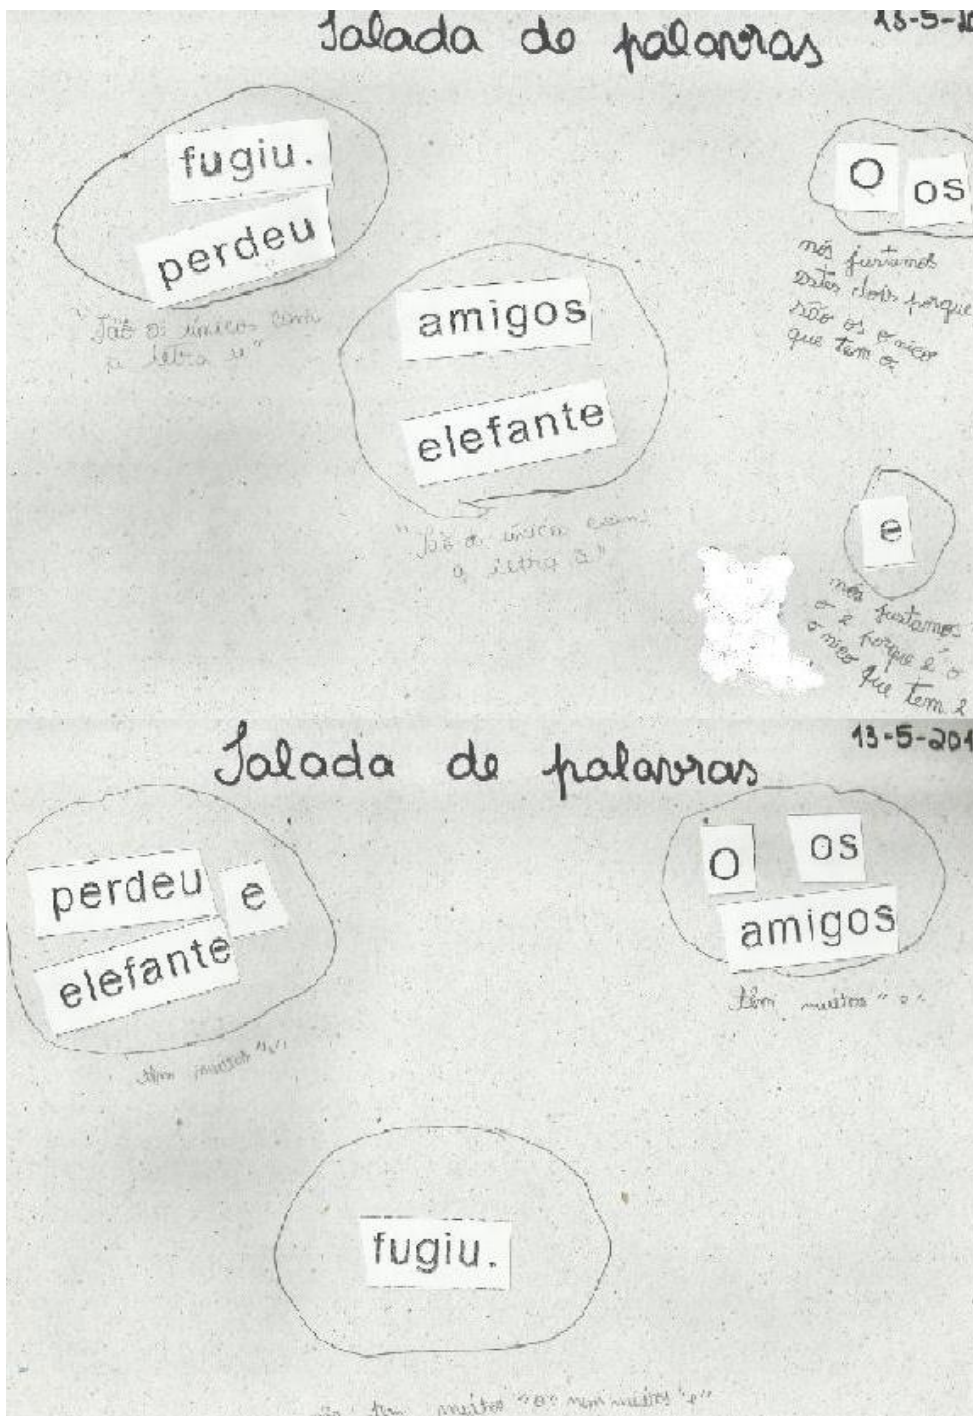 Salada de palavras
13-5-20
fugiu.
perdeu
"São os únicos com
a letra u"
amigos
elefante
"São os únicos com
a letra a"
O os
nós juntamos
estes dois porque
são os onico
que tem o
e
nós juntamos
o e porque é o
onico que tem e
Salada de palavras
13-5-201
perdeu e
elefante
têm muitos "e"
O os
amigos
têm muitos "o"
fugiu.
não tem muitos "o" nem muitos "e"